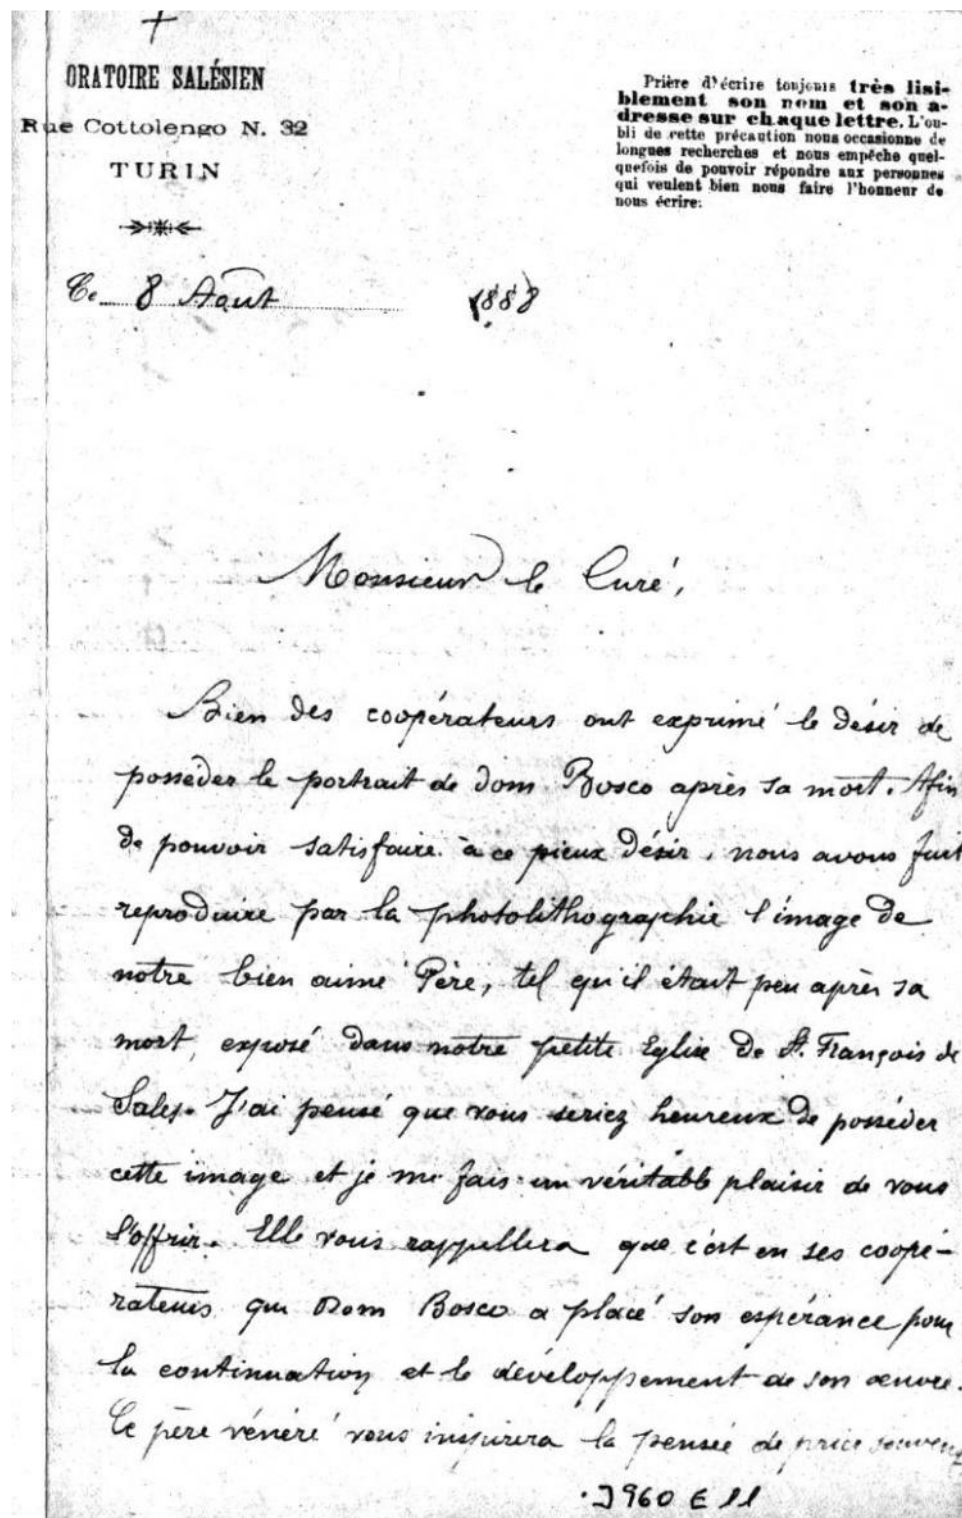 ORATOIRE SALÉSIEN
Rue Cottolengo N. 32
TURIN
Prière d'écrire toujours très lisi-
blement son nom et son a-
dresse sur chaque lettre. L'ou-
bli de cette précaution nous occasionne de
longues recherches et nous empêche quel-
quefois de pouvoir répondre aux personnes
qui veulent bien nous faire l'honneur de
nous écrire.
Ce 8 Aout 1888
Monsieur le Curé,
Bien des coopérateurs ont exprimé le désir de
posséder le portrait de dom Bosco après sa mort. Afin
de pouvoir satisfaire à ce pieux désir, nous avons fait
reproduire par la photolithographie l'image de
notre bien aimé Père, tel qu'il était peu après sa
mort, exposé dans notre petite Eglise de St. François de
Sales. J'ai pensé que vous seriez heureux de posséder
cette image et je me fais un véritable plaisir de vous
l'offrir. Elle vous rappellera que c'est en ses coopé-
rateurs que Dom Bosco a placé son espérance pour
la continuation et le développement de son œuvre.
Ce père vénéré vous inspirera la pensée de prier souvent
J960 E 11